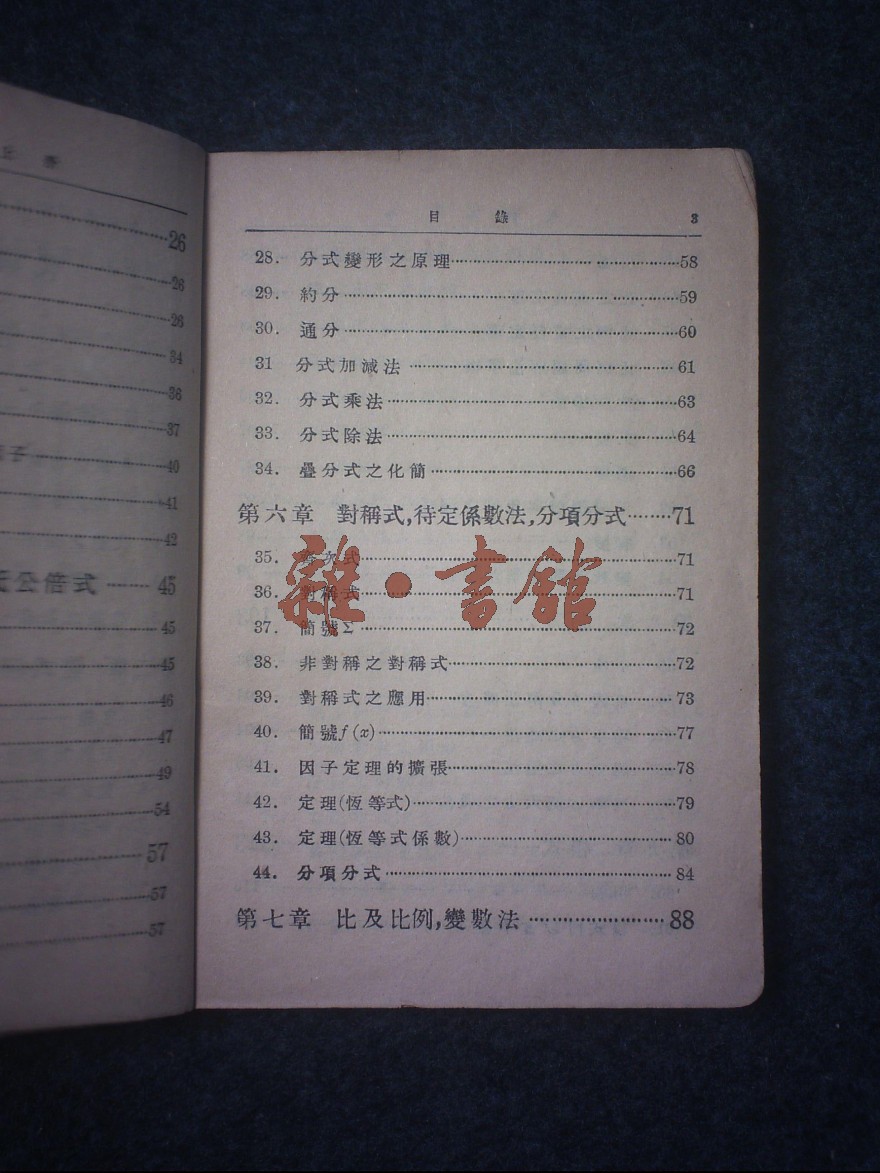 26
26
26
34
36
37
子
40
41
42
公倍式 45
45
45
46
47
49
54
57
57
57
目 錄 3
28. 分式變形之原理 58
29. 約分 59
30. 通分 60
31 分式加減法 61
32. 分式乘法 63
33. 分式除法 64
34. 疊分式之化簡 66
第六章 對稱式,待定係數法,分項分式 71
35. 次式 71
36. 對稱式 71
37. 簡號Σ 72
38. 非對稱之對稱式 72
39. 對稱式之應用 73
40. 簡號f(x) 77
41. 因子定理的擴張 78
42. 定理(恆等式) 79
43. 定理(恆等式係數) 80
44. 分項分式 84
第七章 比及比例,變數法 88
雜·書館